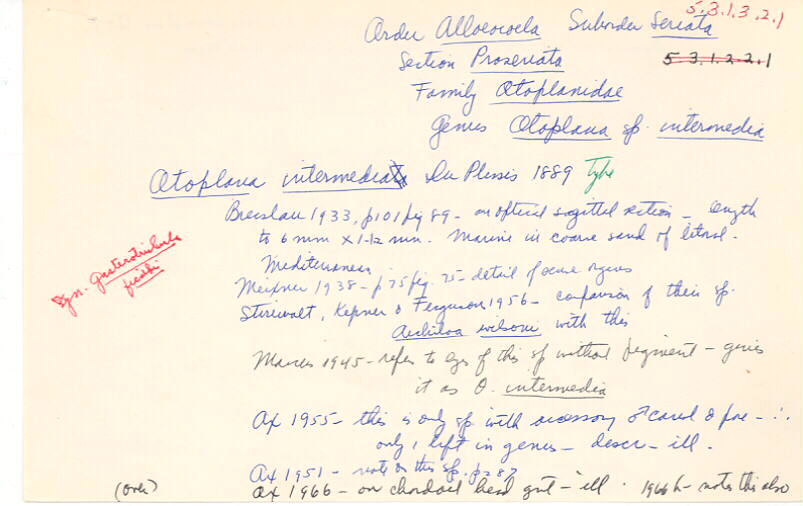 5.3.1.3.2.1
Order Alloeocoela Suborder Seriata
Section Proseriata 5 3.1.2.2.1
Family Otoplanidae
Genus Otoplana sp. intermedia
Otoplana intermedia Du Plessis 1889 Type
Breslau 1933, p101 fig 89 - an optical sagittal section - length
to 6 mm x 1-1/2 mm. Marine in coarse sand of litoral.
Mediterranean
Syn. Gasterostricula
Meixner 1938 - p 75 fig. 75 - detail of
Stirewalt, Kepner & Ferguson 1956 - comparison of their sp.
wilsoni with this
Marcus 1945 - refers to eyes of this sp without pigment - gives
it as O. intermedia
Ax 1955 - this is only sp with accessory ♂ canal & pore - ∴
only 1 left in genus - descr - ill.
Ax 1951 - note on this sp. p 287
(over) Ax 1966 - on chordoid head gut - ill. 1966 h - notes this also